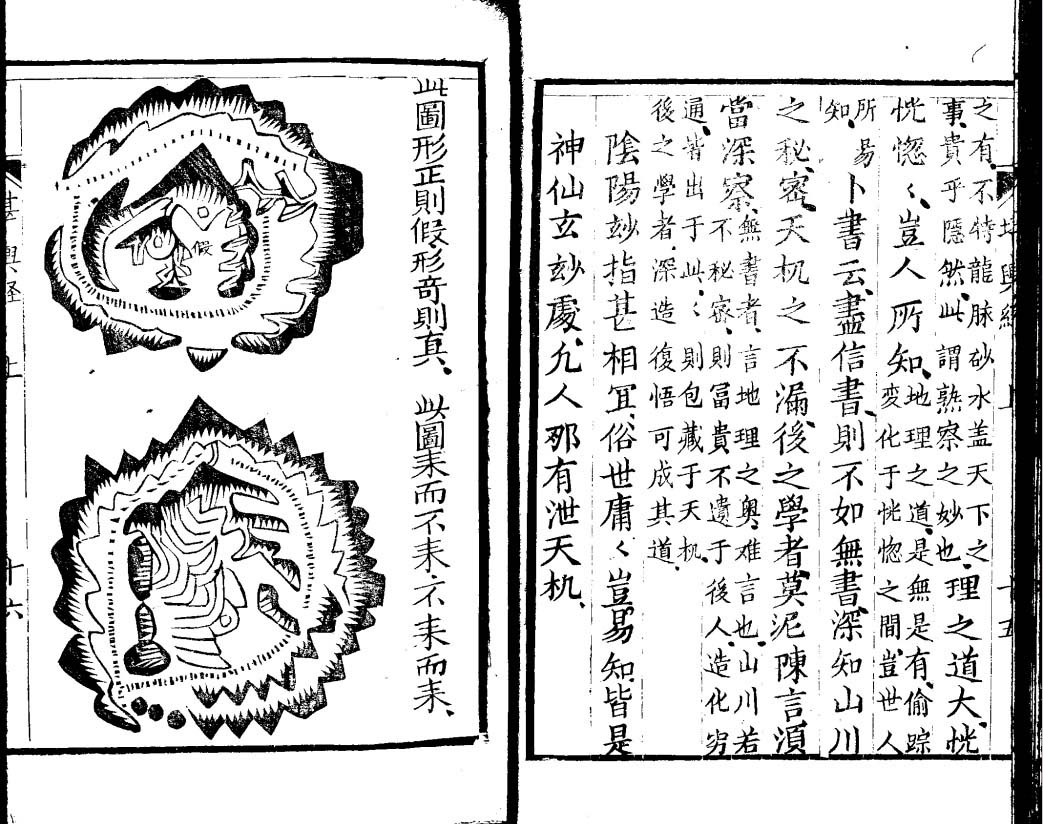 之有不特龍脉砂水盖天下之
事貴乎隱然此謂熟察之妙也
理之道大恍
恍惚〻豈人所知
地理之道是無是有偷踪
変化于恍惚之間豈世人
所知
易卜書云盡信書則不如無書深知山川
之秘密天机之不漏後之學者莫泥陳言湏
當深察
無書者言地理之奥难言也山川若
不秘密則冨貴不遺于後人造化穷
通皆出于此〻則包藏于天机
後之學者深造復悟可成其道
陰陽玅指甚相冝俗世庸〻豈易知皆是
神仙玄玅處凢人那有泄天机
堪輿經 上 十五
此圖形正則假形奇則真
此圖耒而不耒不耒而耒
假
堪輿經 上 十六